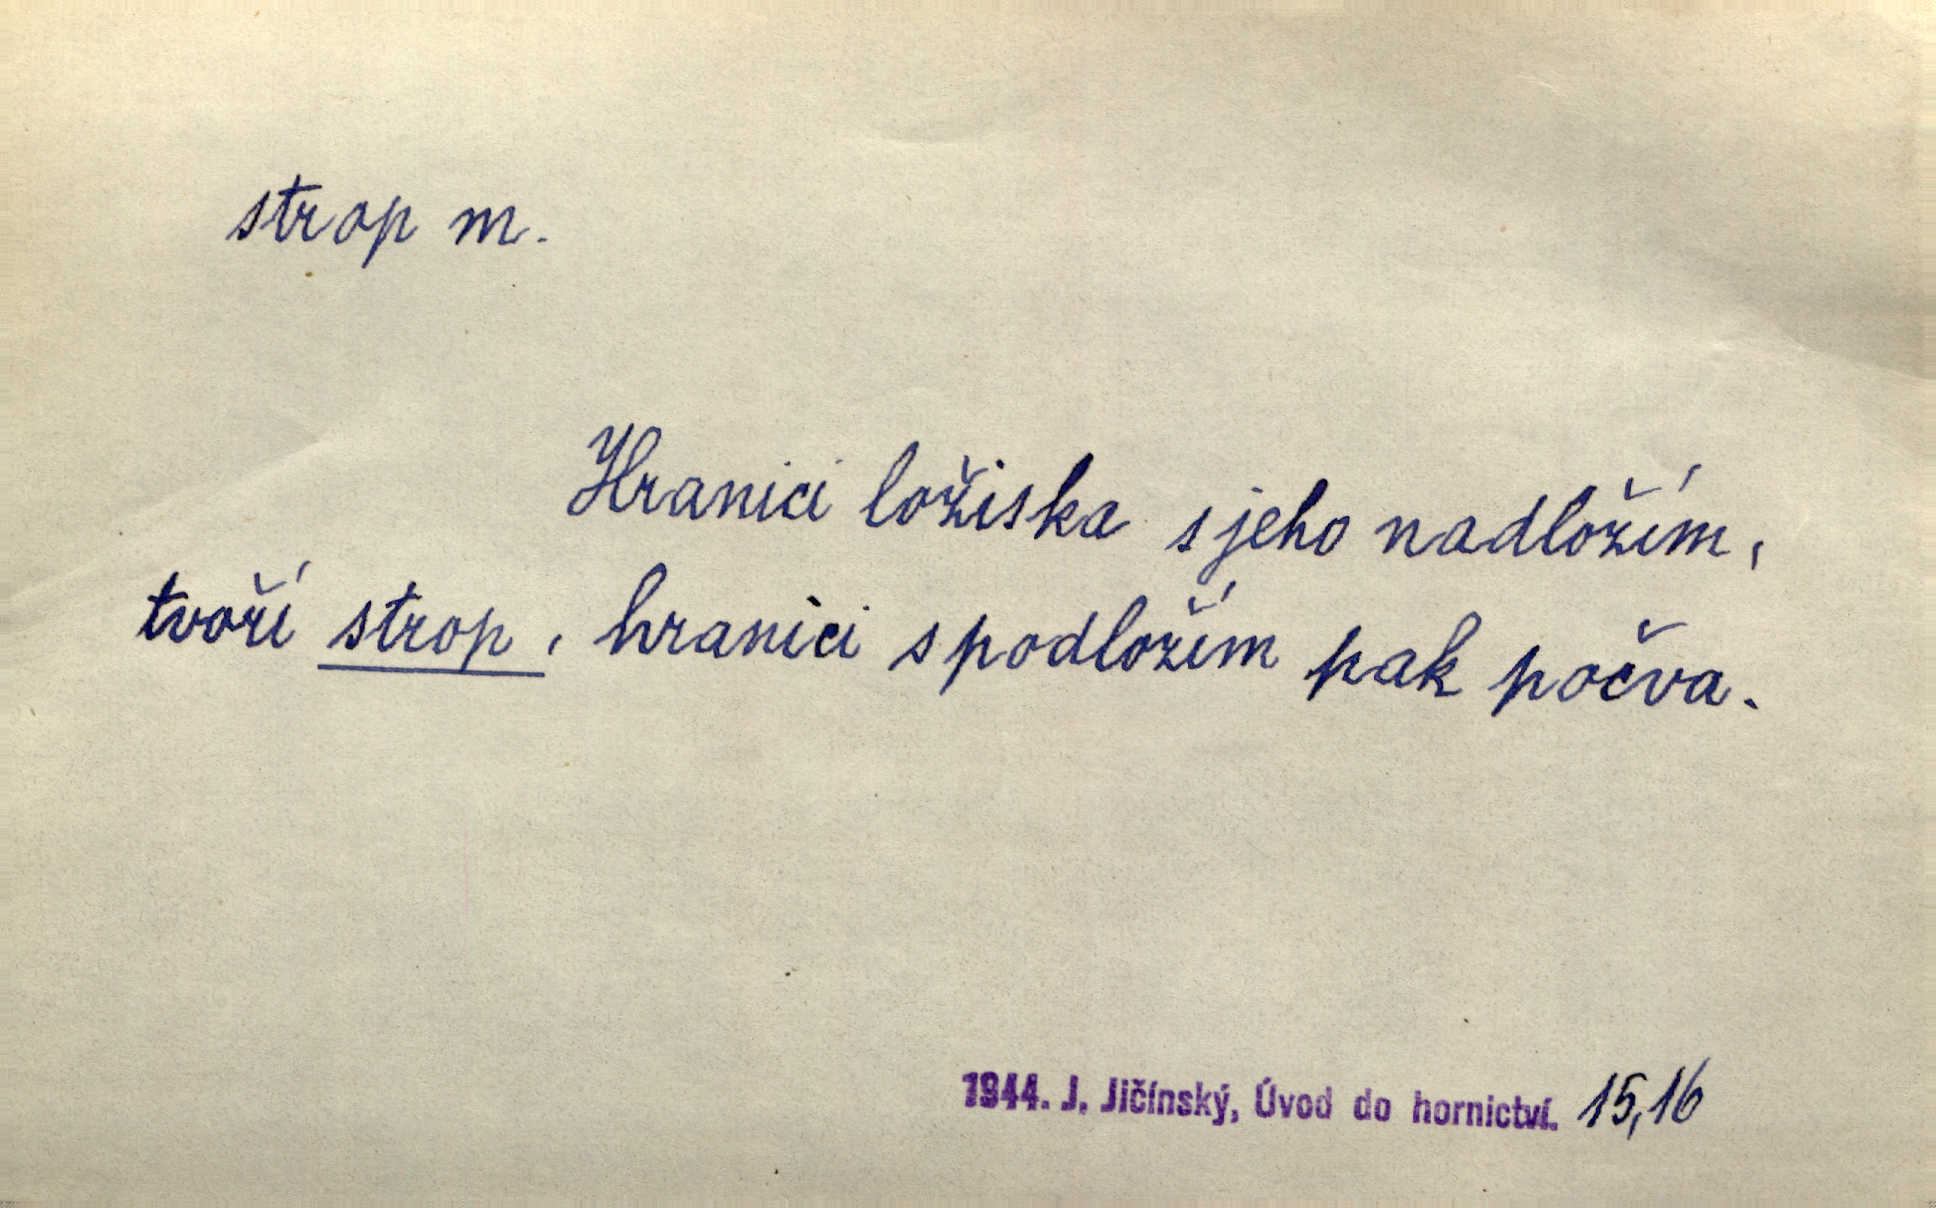 strop m.
Hranici ložiska s jeho nadložím,
tvoří strop, hranici s podložím pak počva.
1944. J. Jičínský, Úvod do hornictví. 15,16